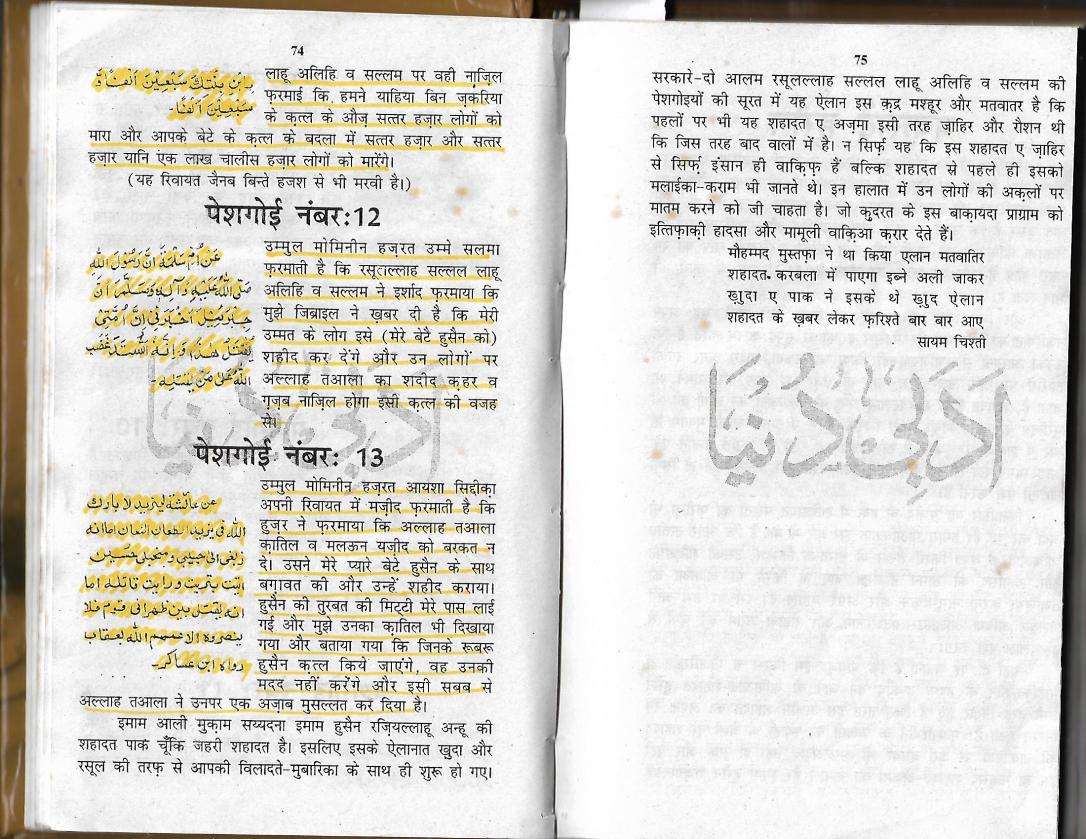 74
بابن بنتك سبعين الفا و
سبعين الفا۔
लाहू अलिहि व सल्लम पर वही नाज़िल
फ़रमाई कि, हमने याहिया बिन ज़करिया
के क़त्ल के औज़ सत्तर हज़ार लोगों को
मारा और आपके बेटे के क़त्ल के बदला में सत्तर हज़ार और सत्तर
हज़ार यानि एक लाख चालीस हज़ार लोगों को मारेंगे।
(यह रिवायत जैनब बिन्ते हजश से भी मरवी है।)
पेशगोई नंबर: 12
عن أم سلمة ان رسول الله
صلى الله عليه وآله وسلم
أن
جبرئيل اخبرني ان امتي
يقتل هذا وانه اشتد غضب
الله على من يقتله۔
उम्मुल मोमिनीन हज़रत उम्मे सलमा
फ़रमाती है कि रसूलल्लाह सल्लल लाहू
अलिहि व सल्लम ने इर्शाद फ़रमाया कि
मुझे जिब्राइल ने ख़बर दी है कि मेरी
उम्मत के लोग इसे (मेरे बेटे हुसैन को)
शहीद कर देंगे और उन लोगों पर
अल्लाह तआला का शदीद क़हर व
ग़ज़ब नाज़िल होगा इसी क़त्ल की वजह
से।
पेशगोई नंबर: 13
عن عائشة ليزيد لا بارك
الله في يزيد الطعان اللعان
حسين
بتربته ورايت قاتله اما
انه يقتل بين ظهراني قوم فلا
ينصروه الا عمهم الله بعقاب
رواه ابن عساكر۔
उम्मुल मोमिनीन हज़रत आयशा सिद्दीका
अपनी रिवायत में मज़ीद फ़रमाती है कि
हुज़ूर ने फ़रमाया कि अल्लाह तआला
क़ातिल व मलऊन यज़ीद को बरकत न
दे। उसने मेरे प्यारे बेटे हुसैन के साथ
बग़ावत की और उन्हें शहीद कराया।
हुसैन की तुरबत की मिट्टी मेरे पास लाई
गई और मुझे उनका क़ातिल भी दिखाया
गया और बताया गया कि जिनके रूबरू
हुसैन क़त्ल किये जाएंगे, वह उनकी
मदद नहीं करेंगे और इसी सबब से
अल्लाह तआला ने उनपर एक अज़ाब मुसल्लत कर दिया है।
इमाम आली मुक़ाम सय्यदना इमाम हुसैन रज़ियल्लाहू अन्हू की
शहादत पाक चूँकि जहरी शहादत है। इसलिए इसके ऐलानात खुदा और
रसूल की तरफ़ से आपकी विलादते-मुबारिका के साथ ही शुरू हो गए।
ادبی دنیا
75
सरकारे-दो आलम रसूलल्लाह सल्लल लाहू अलिहि व सल्लम की
पेशगोइयों की सूरत में यह ऐलान इस क़द्र मश्हूर और मतवातर है कि
पहलों पर भी यह शहादत ए अज़्मा इसी तरह ज़ाहिर और रौशन थी
कि जिस तरह बाद वालों में है। न सिर्फ़ यह कि इस शहादत ए ज़ाहिर
से सिर्फ़ इंसान ही वाक़िफ़ हैं बल्कि शहादत से पहले ही इसको
मलाईका-कराम भी जानते थे। इन हालात में उन लोगों की अक़लों पर
मातम करने को जी चाहता है। जो कुदरत के इस बाक़ायदा प्राग्राम को
इत्तिफ़ाक़ी हादसा और मामूली वाक़िआ क़रार देते हैं।
मौहम्मद मुस्तफ़ा ने था किया एलान मतवातिर
शहादत करबला में पाएगा इब्ने अली जाकर
ख़ुदा ए पाक ने इसके थे ख़ुद ऐलान
शहादत के ख़बर लेकर फ़रिश्ते बार बार आए
सायम चिश्ती
ادبی دنیا